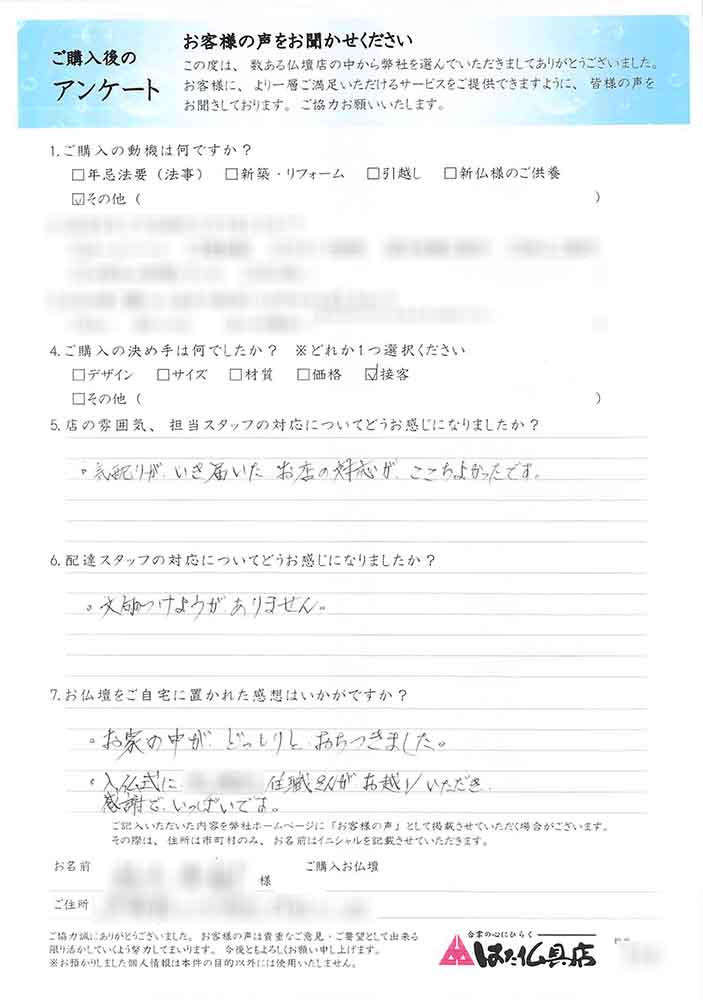 ご購入後の
アンケート
お客様の声をお聞かせください
この度は、数ある仏壇店の中から弊社を選んでいただきましてありがとうございました。
お客様に、より一層ご満足いただけるサービスをご提供できますように、皆様の声を
お聞きしております。ご協力お願いいたします。
1.ご購入の動機は何ですか？
□年忌法要（法事） □新築・リフォーム □引越し □新仏様のご供養
☑その他（ ）
4.ご購入の決め手は何でしたか？ ※どれか1つ選択ください
□デザイン □サイズ □材質 □価格 ☑接客
□その他（ ）
5.店の雰囲気、担当スタッフの対応についてどうお感じになりましたか？
。気配りが、いき届いた お店の対応が、ここちよかったです。
6.配達スタッフの対応についてどうお感じになりましたか？
。文句のつけようがありません。
7.お仏壇をご自宅に置かれた感想はいかがですか？
。お家の中が、どっしりと、おちつきました。
。入仏式に 住職さんがお越しいただき、
感謝で、いっぱいです。
ご記入いただいた内容を弊社ホームページに『お客様の声』として掲載させていただく場合がございます。
その際は、住所は市町村のみ、お名前はイニシャルを記載させていただきます。
お名前 様 ご購入お仏壇
ご住所
ご協力誠にありがとうございました。お客様の声は貴重なご意見・ご要望として出来る
限り活かしていくよう努力してまいります。今後ともよろしくお願い申し上げます。
※お預かりしました個人情報は本件の目的以外には使用いたしません。
合掌の心にひらく
はた仏具店